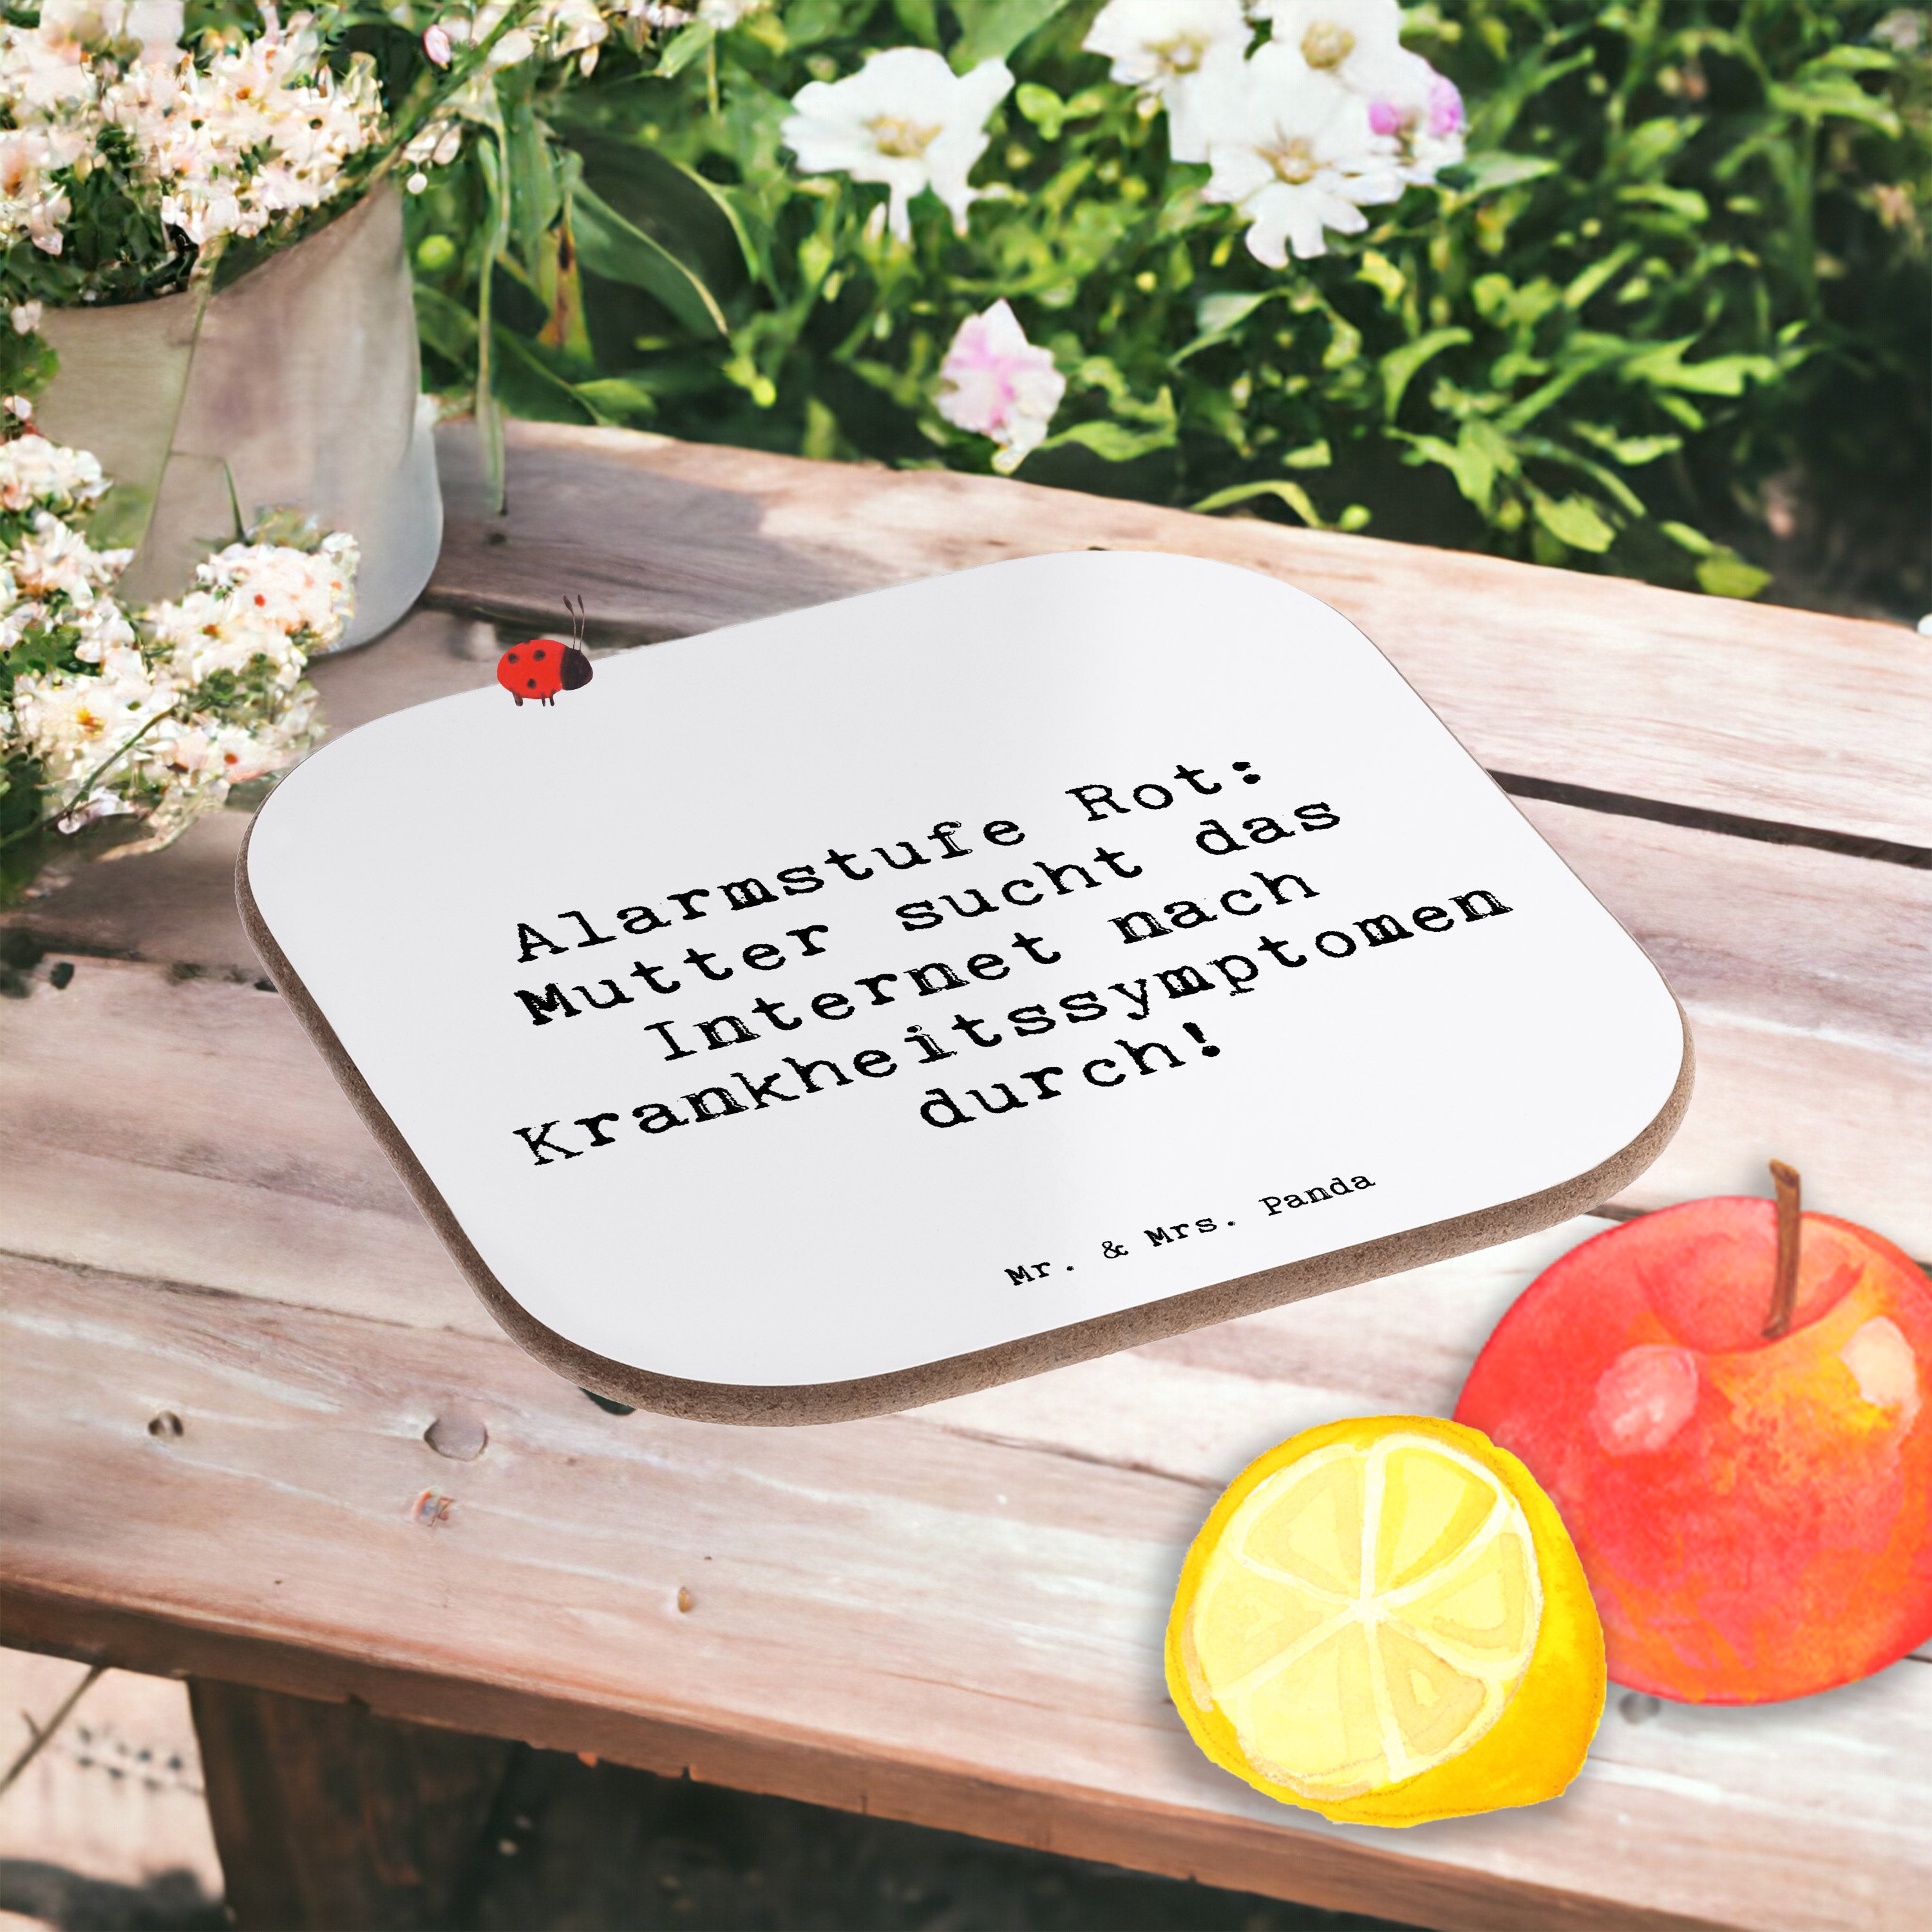 Alarmstufe Rot:
Mutter sucht das
Internet nach
Krankheitssymptomen
durch!
Mr. & Mrs. Panda